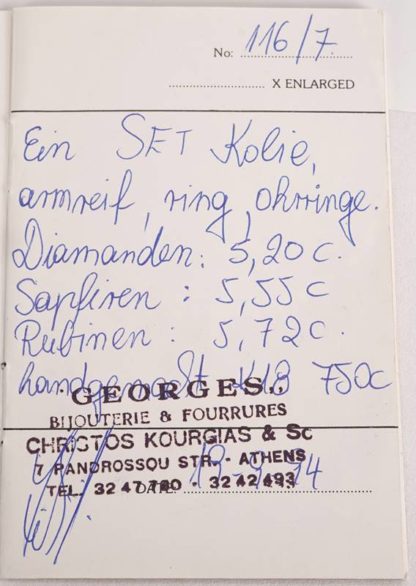 No: 116/7
X ENLARGED
Ein SET Kolie,
armreif, ring, ohrringe.
Diamanden: 5,20 c.
Sapfiren : 5,55 c
Rubinen : 5,72 c.
handgemacht K18 750c
GEORGES
BIJOUTERIE & FOURRURES
CHRISTOS KOURGIAS & Sc
7 PANDROSSOU STR. - ATHENS
DATE: 19
TEL. 32 47 780 - 32 42 493